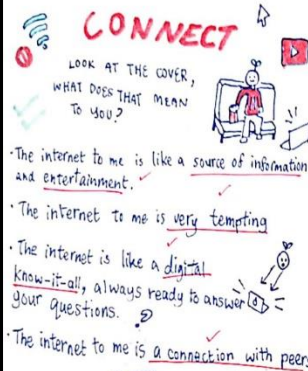 CONNECT
LOOK AT THE COVER,
WHAT DOES THAT MEAN
TO YOU?
• The internet to me is like a source of information
and entertainment.
• The internet to me is very tempting
• The internet is like a digital
know-it-all, always ready to answer
your questions.
• The internet to me is a connection with peers